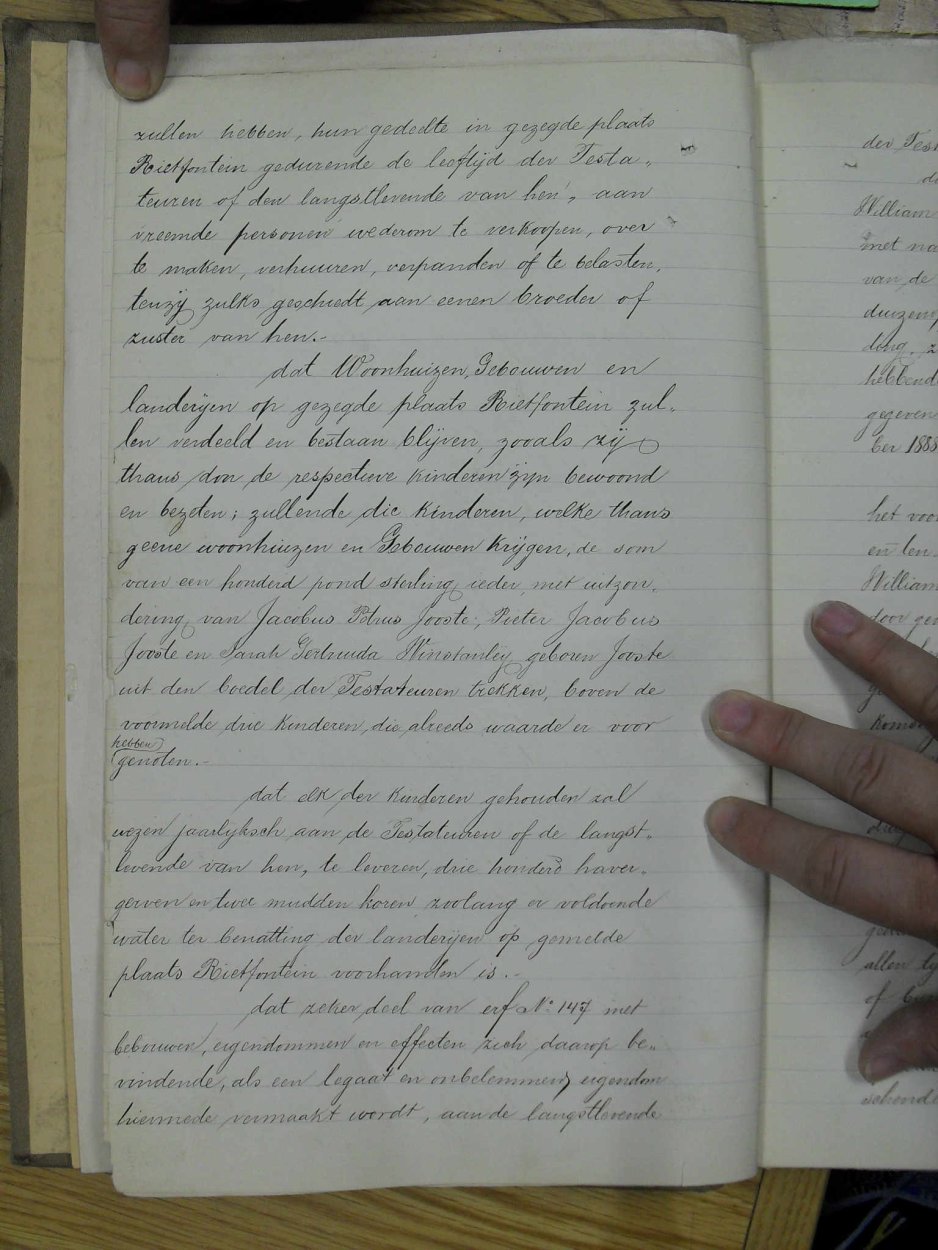 zullen hebben, hun gedeelte in gezegde plaats
Rietfontein gedurende de leeftijd der Testa„
teuren of den langstlevende van hen, aan
vreemde personen wederom te verkoopen, over
te maken, verhuuren, verpanden of te belasten,
tenzij zulks geschiedt aan eenen broeder of
zuster van hen.-
dat Woonhuizen, Gebouwen en
landerijen op gezegde plaats Rietfontein zul„
len verdeeld en bestaan blijven, zooals zij
thans door de respectieve kinderen zijn bewoond
en bezeten; zullende die kinderen, welke thans
geene woonhuizen en Gebouwen krijgen, de som
van een honderd pond sterling ieder, met uitzon„
dering van Jacobus Petrus Jooste, Pieter Jacobus
Jooste en Sarah Gertruida Winstanley geboren Jooste
uit den boedel der Testateuren trekken, boven de
voormelde drie kinderen, die alreeds waarde er voor
hebben
genoten.-
dat elk der kinderen gehouden zal
wezen jaarlijksch aan de Testateuren of de langst„
levende van hen, te leveren, drie honderd haver„
gerven en twee mudden koren zoolang er voldoende
water ter benatting der landerijen op gemelde
plaats Rietfontein voorhanden is.-
dat zeker deel van erf No. 147 met
gebouwen, eigendommen en effecten zich daarop be„
vindende, als een legaat en onbelemmerd eigendom
hiermede vermaakt wordt, aan de langstlevende
der
William
met
van de
hebbend
gegeven
ber 1888
het
en
William
door
allen
of